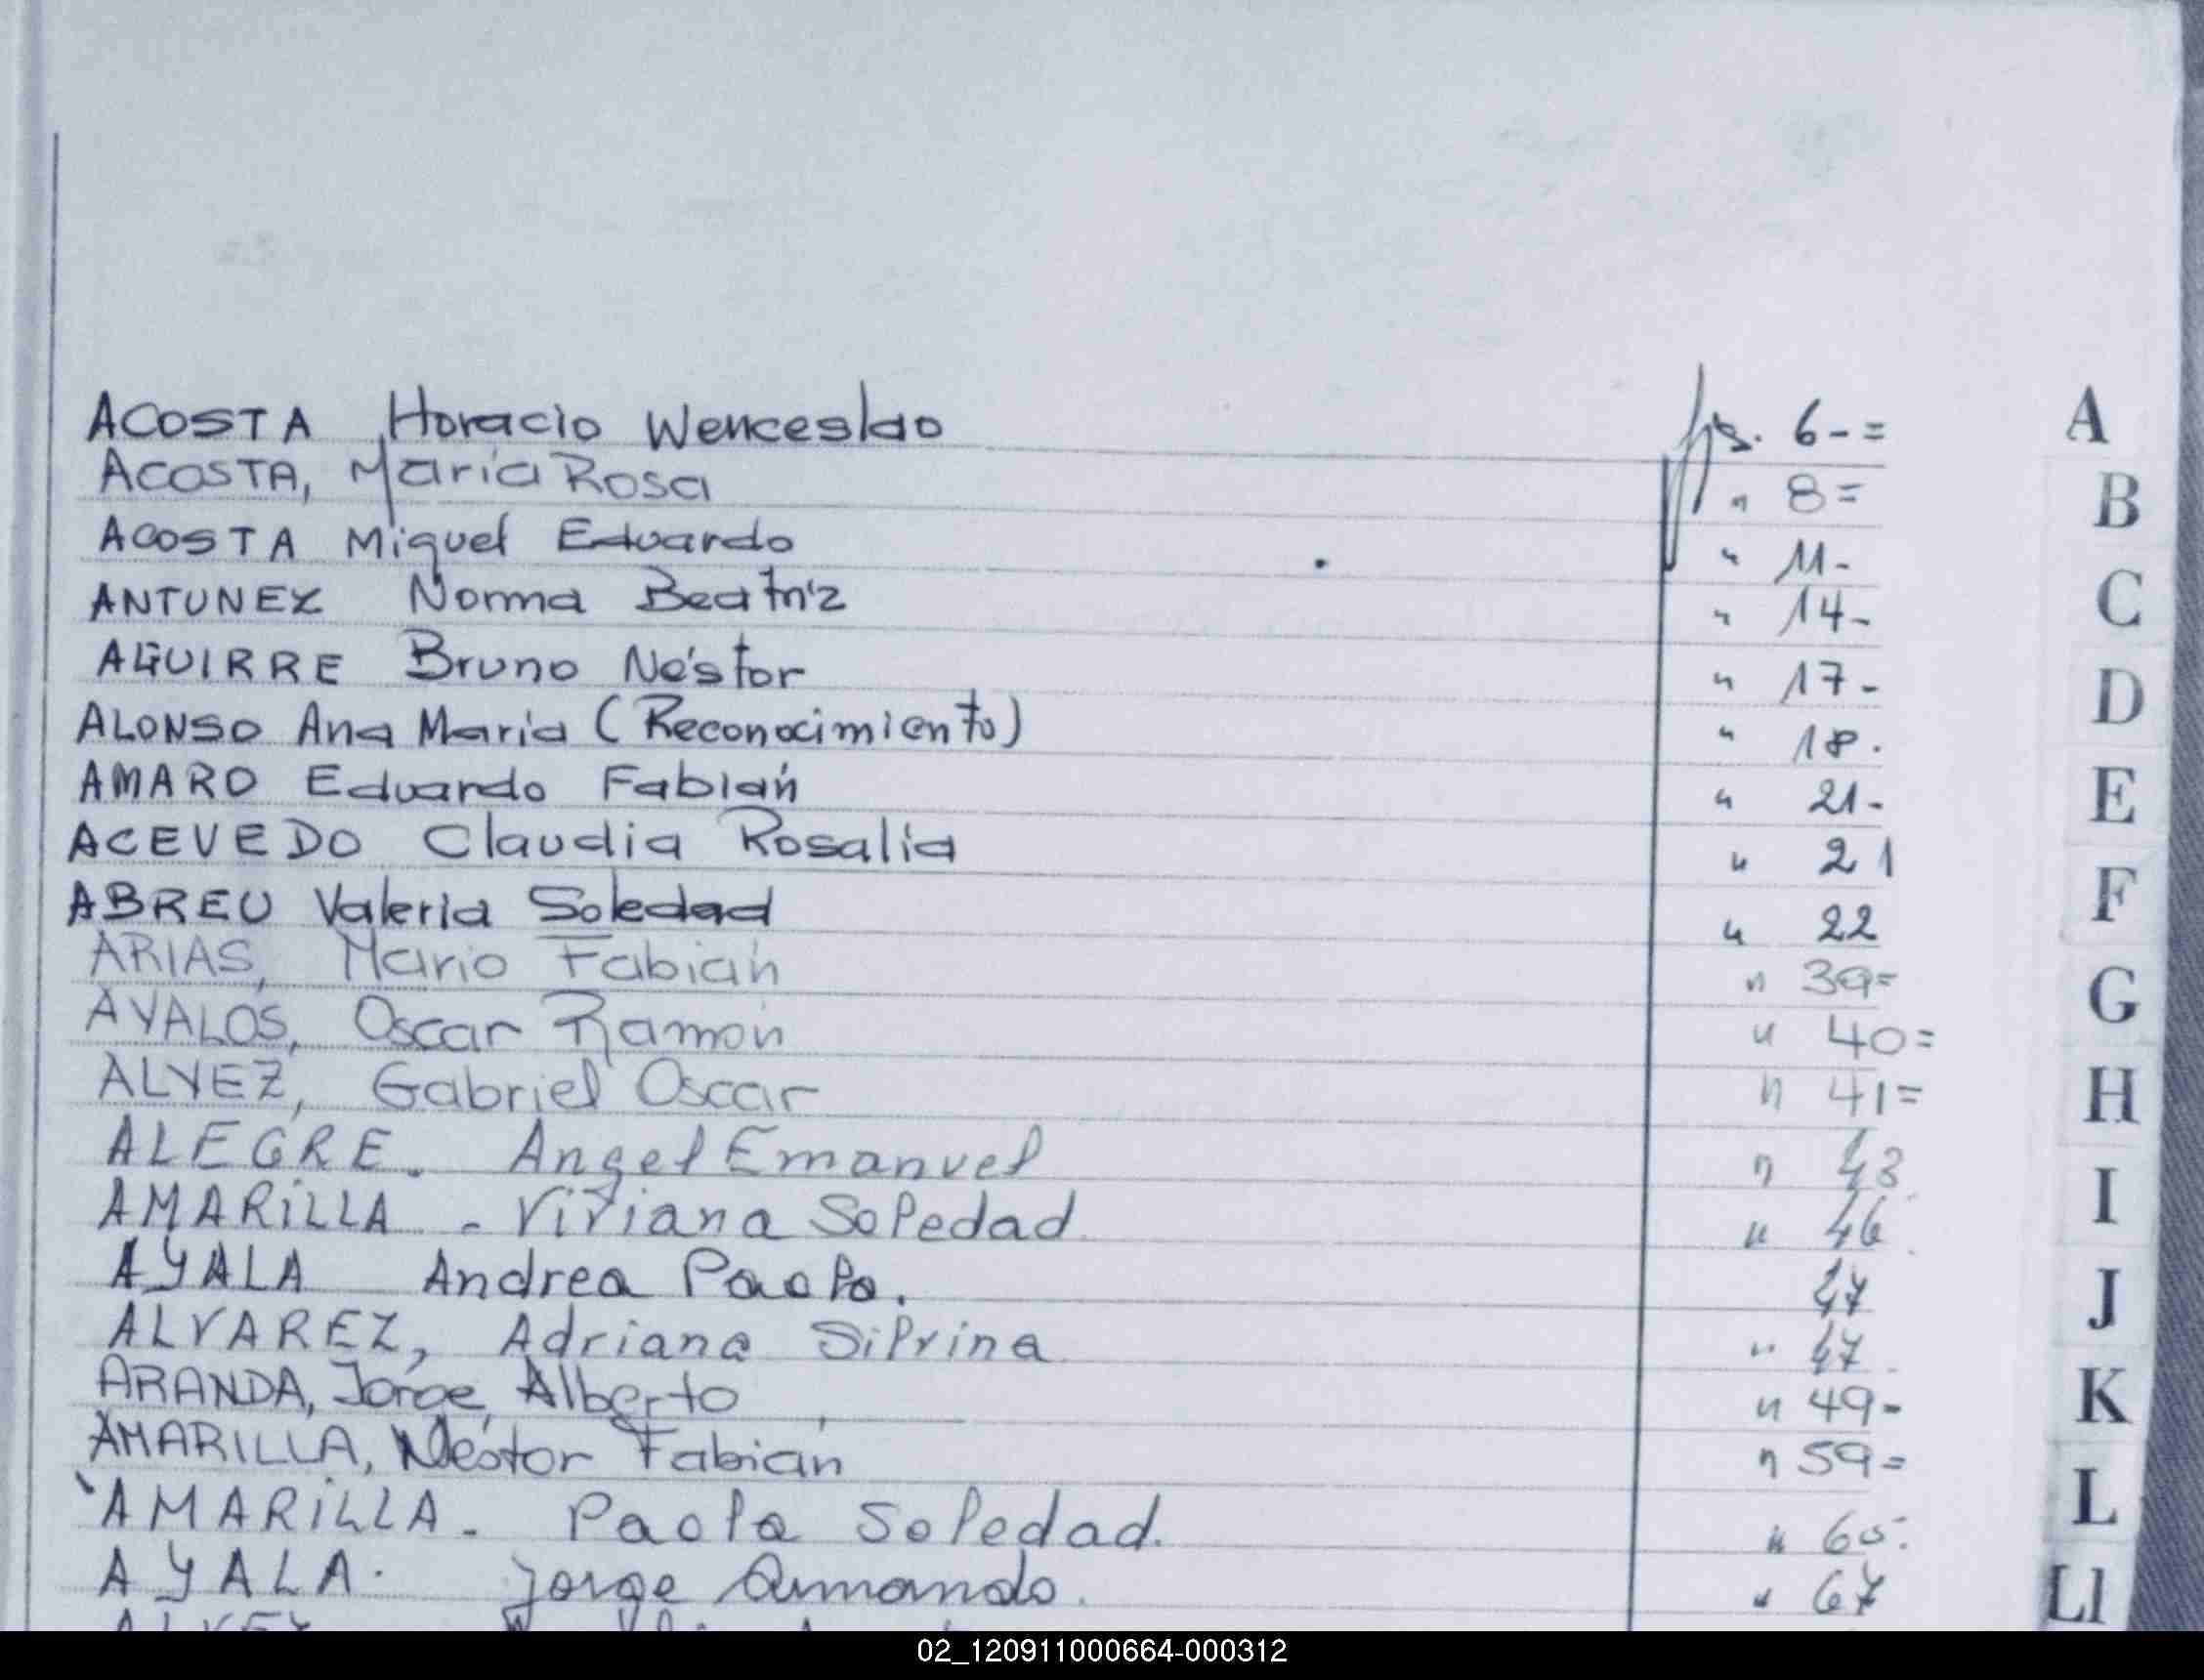 ACOSTA, Horacio Wenceslao fjs. 6-= A
ACOSTA, María Rosa " 8= B
ACOSTA Miguel Eduardo " 11-
ANTUNEZ Norma Beatriz " 14- C
AGUIRRE Bruno Néstor " 17- D
ALONSO Ana María (Reconocimiento) " 18.
AMARO Eduardo Fabián " 21- E
ACEVEDO Claudia Rosalía " 21
ABREU Valeria Soledad " 22 F
ARIAS, Mario Fabián " 39= G
AYALOS, Oscar Ramón " 40=
ALVEZ, Gabriel Oscar " 41= H
ALEGRE. Angel Emanuel " 43
AMARILLA - Viviana Soledad " 46 I
AYALA Andrea Paola. 47 J
ALVAREZ, Adriana Silvina " 47
ARANDA, Jorge Alberto " 49- K
AMARILLA, Néstor Fabián " 59=
AMARILLA. Paola Soledad. " 65. L
AYALA. Jorge Armando. " 67 Ll
02_120911000664-000312